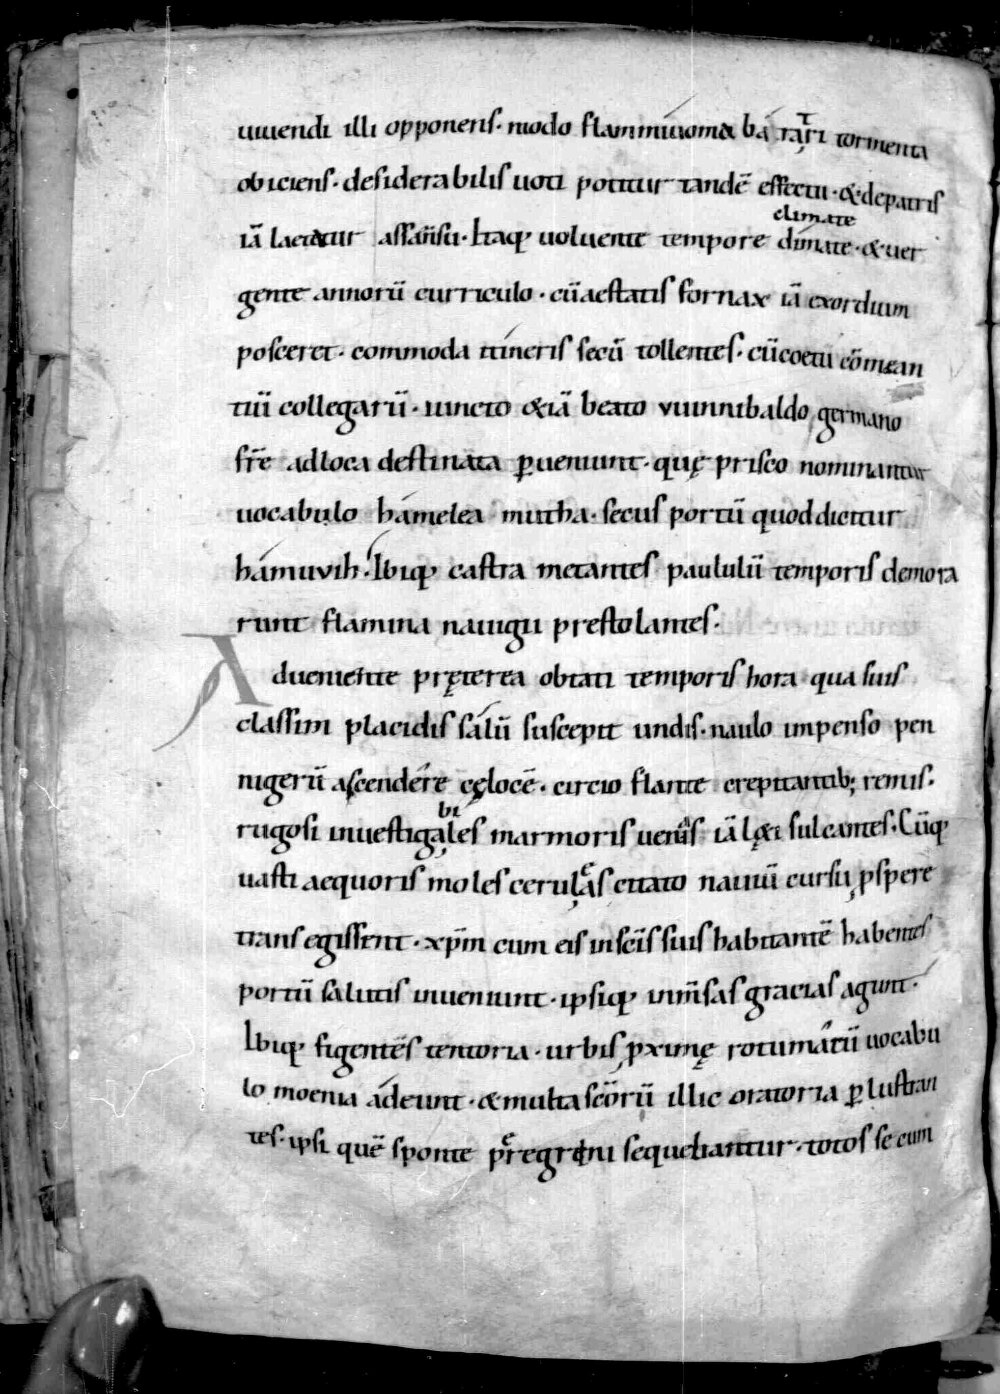 uiuendi illi opponens· modo flammiuomę ba ratri tormenta
obiciens· desiderabilis uoti potitur tandē effectu· & de patris
climate
iā laetatur assensu· Itaq; uoluente tempore dimate· & uer
gente annorū curriculo· cū aestatis fornax iā exordium
posceret· commoda itineris secū tollentes· cū coetu cōmean
tiū collegarū· iuncto & iā beato vuinnibaldo germano
frē ad loca destinata ꝑueniunt· quę prisco nominantur
uocabulo hamelea mutha· secus portū quod dicitur
hamuvih· Ibiq; castra metantes paululū temporis demora
runt flamina nauigii prestolantes·
Adueniente pręterea obtati temporis hora qua suis
classim placidis salū suscepit undis· naulo impenso pen
nigerū ascendere cęlocē· circio flante crepitantib; remis·
bi
rugosi inuestigales marmoris uenas iā lęti sulcantes· Cūq;
uasti aequoris moles cerulas citato nauiū cursu ꝓspere
transegissent· xp̄m cum eis in sc̄is suis habitantē habentes
portū salutis inueniunt· ipsiq; inm̄sas gracias agunt·
Ibiq; figentes tentoria· urbis ꝓximę rotumatū uocabu
lo moenia adeunt· & multa sc̄orū illic oratoria ꝑlustran
tes· ipsi quē sponte peregrini sequebantur· totos se cum